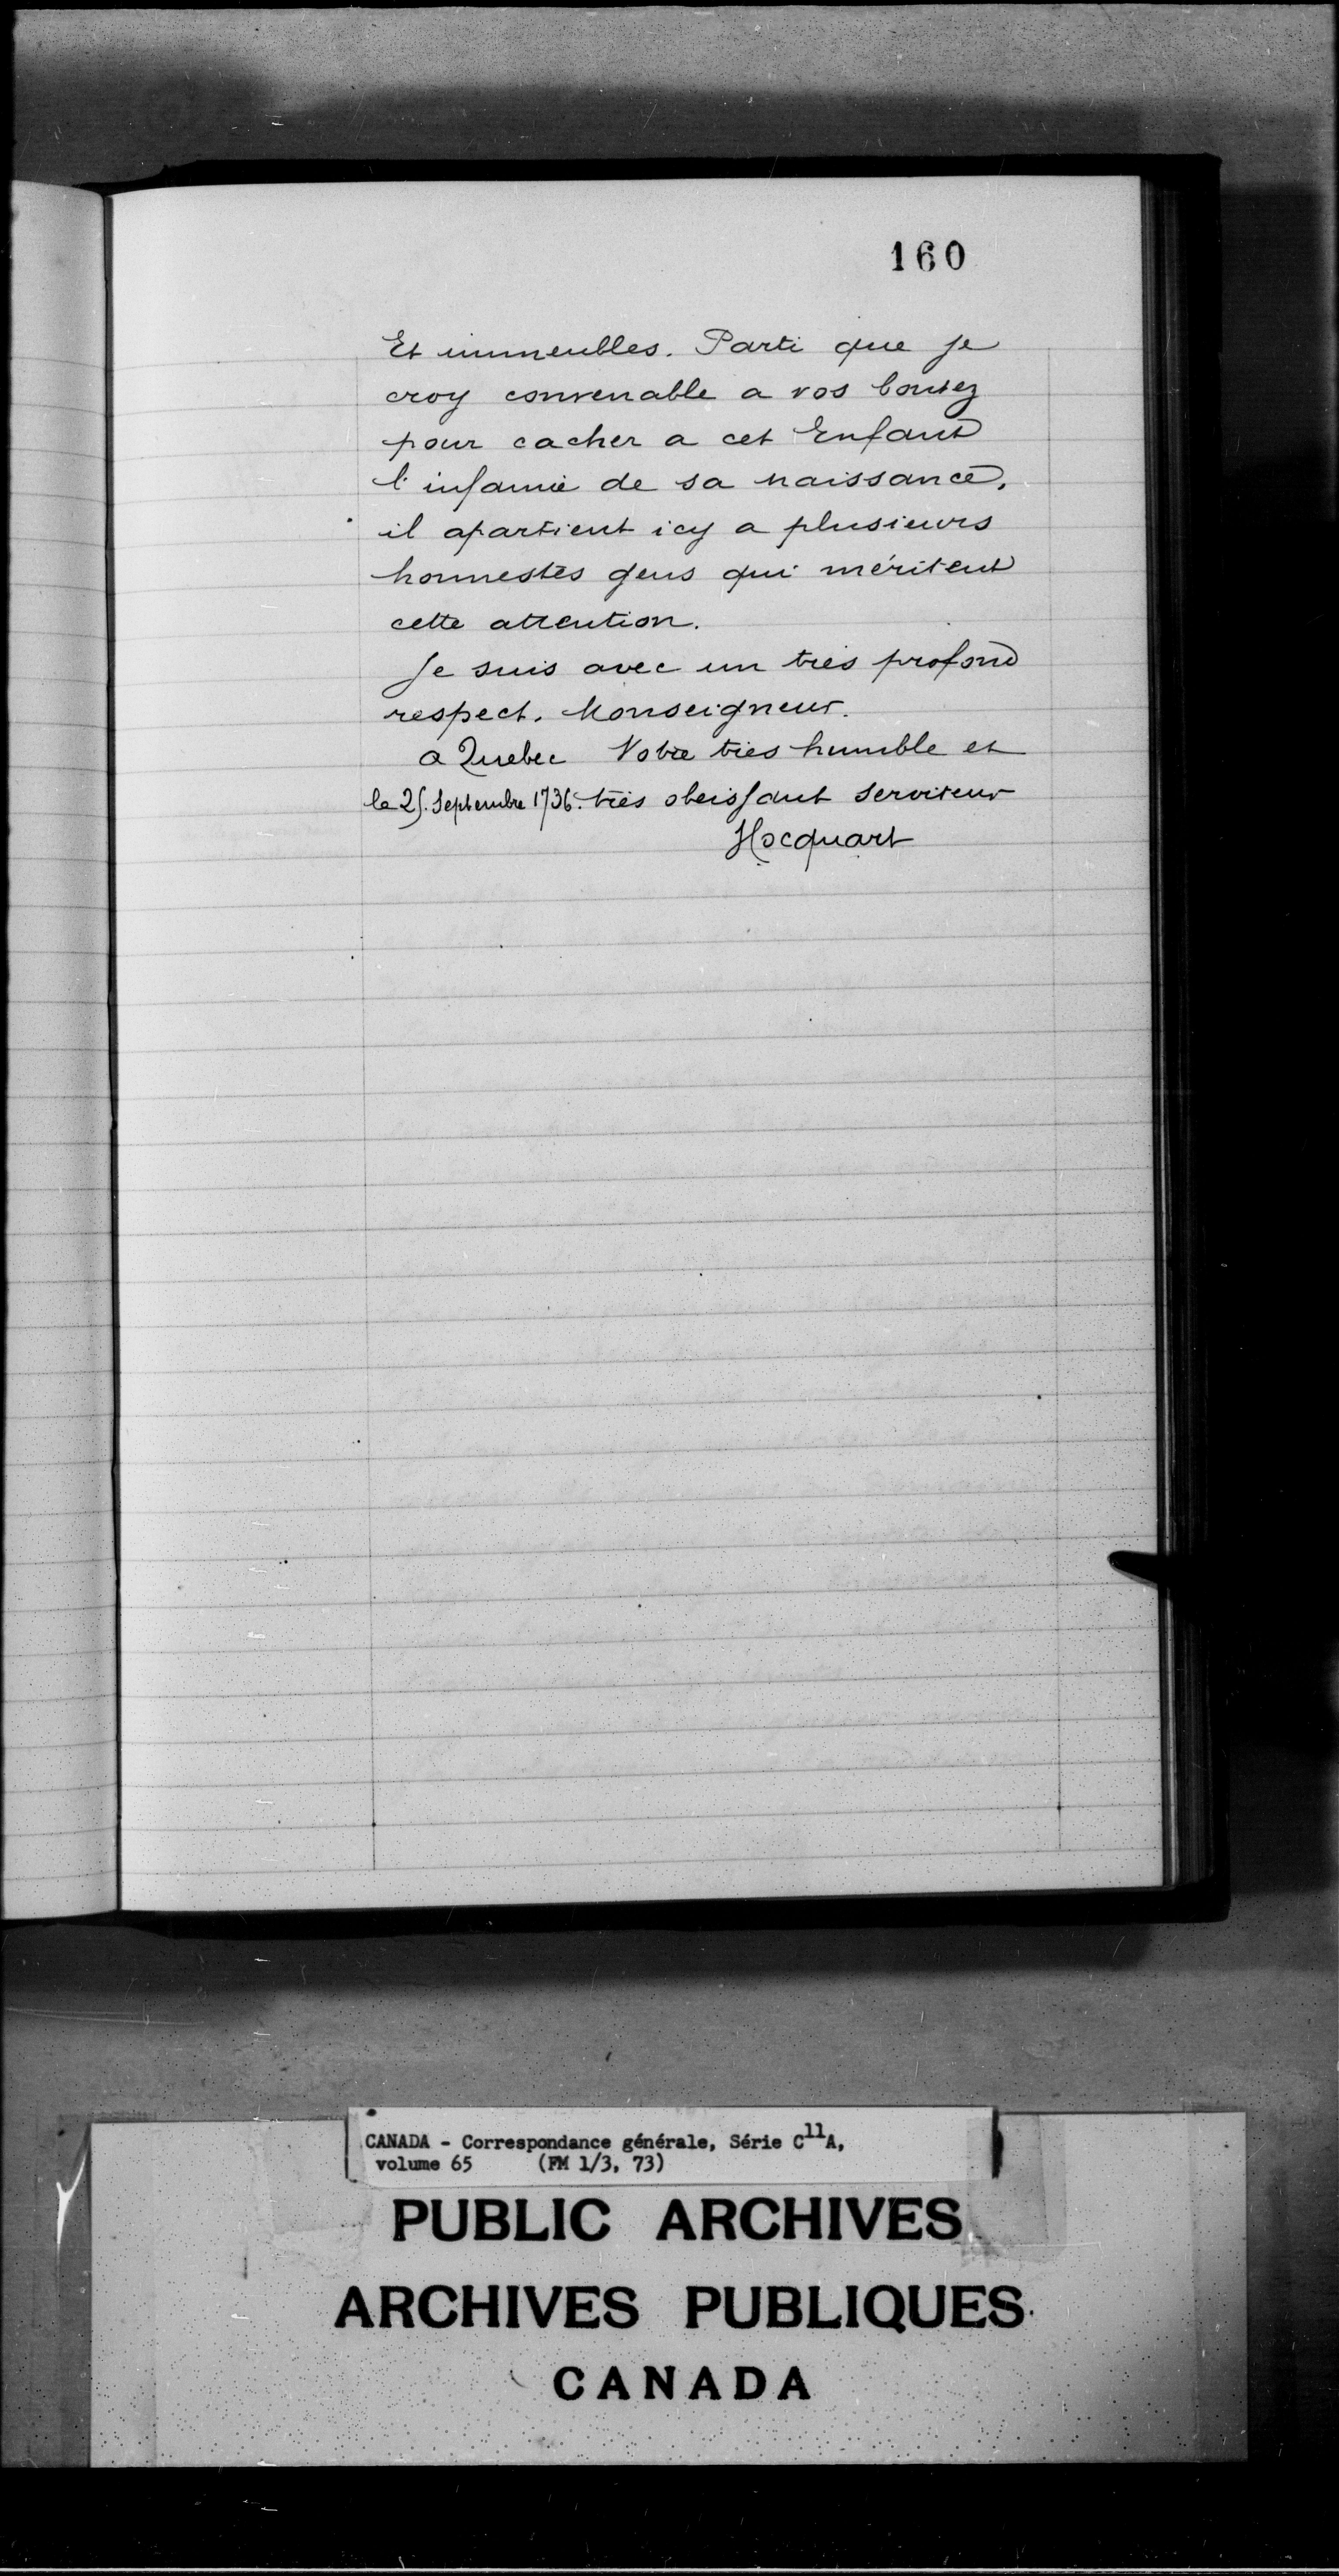 160
Et immeubles. Parti que je
croy convenable a vos bontez
pour cacher a cet Enfant
l'infamie de sa naissance,
il apartient icy a plusieurs
honnestes gens qui méritent
cette attention.
Je suis avec un très profond
respect. Monseigneur.
a Quebec Votre très humble et
le 25. Septembre 1736. très obeissant serviteur
Hocquart
CANADA - Correspondance générale, Série C11A,
volume 65 (FM 1/3, 73)
PUBLIC ARCHIVES
ARCHIVES PUBLIQUES
CANADA